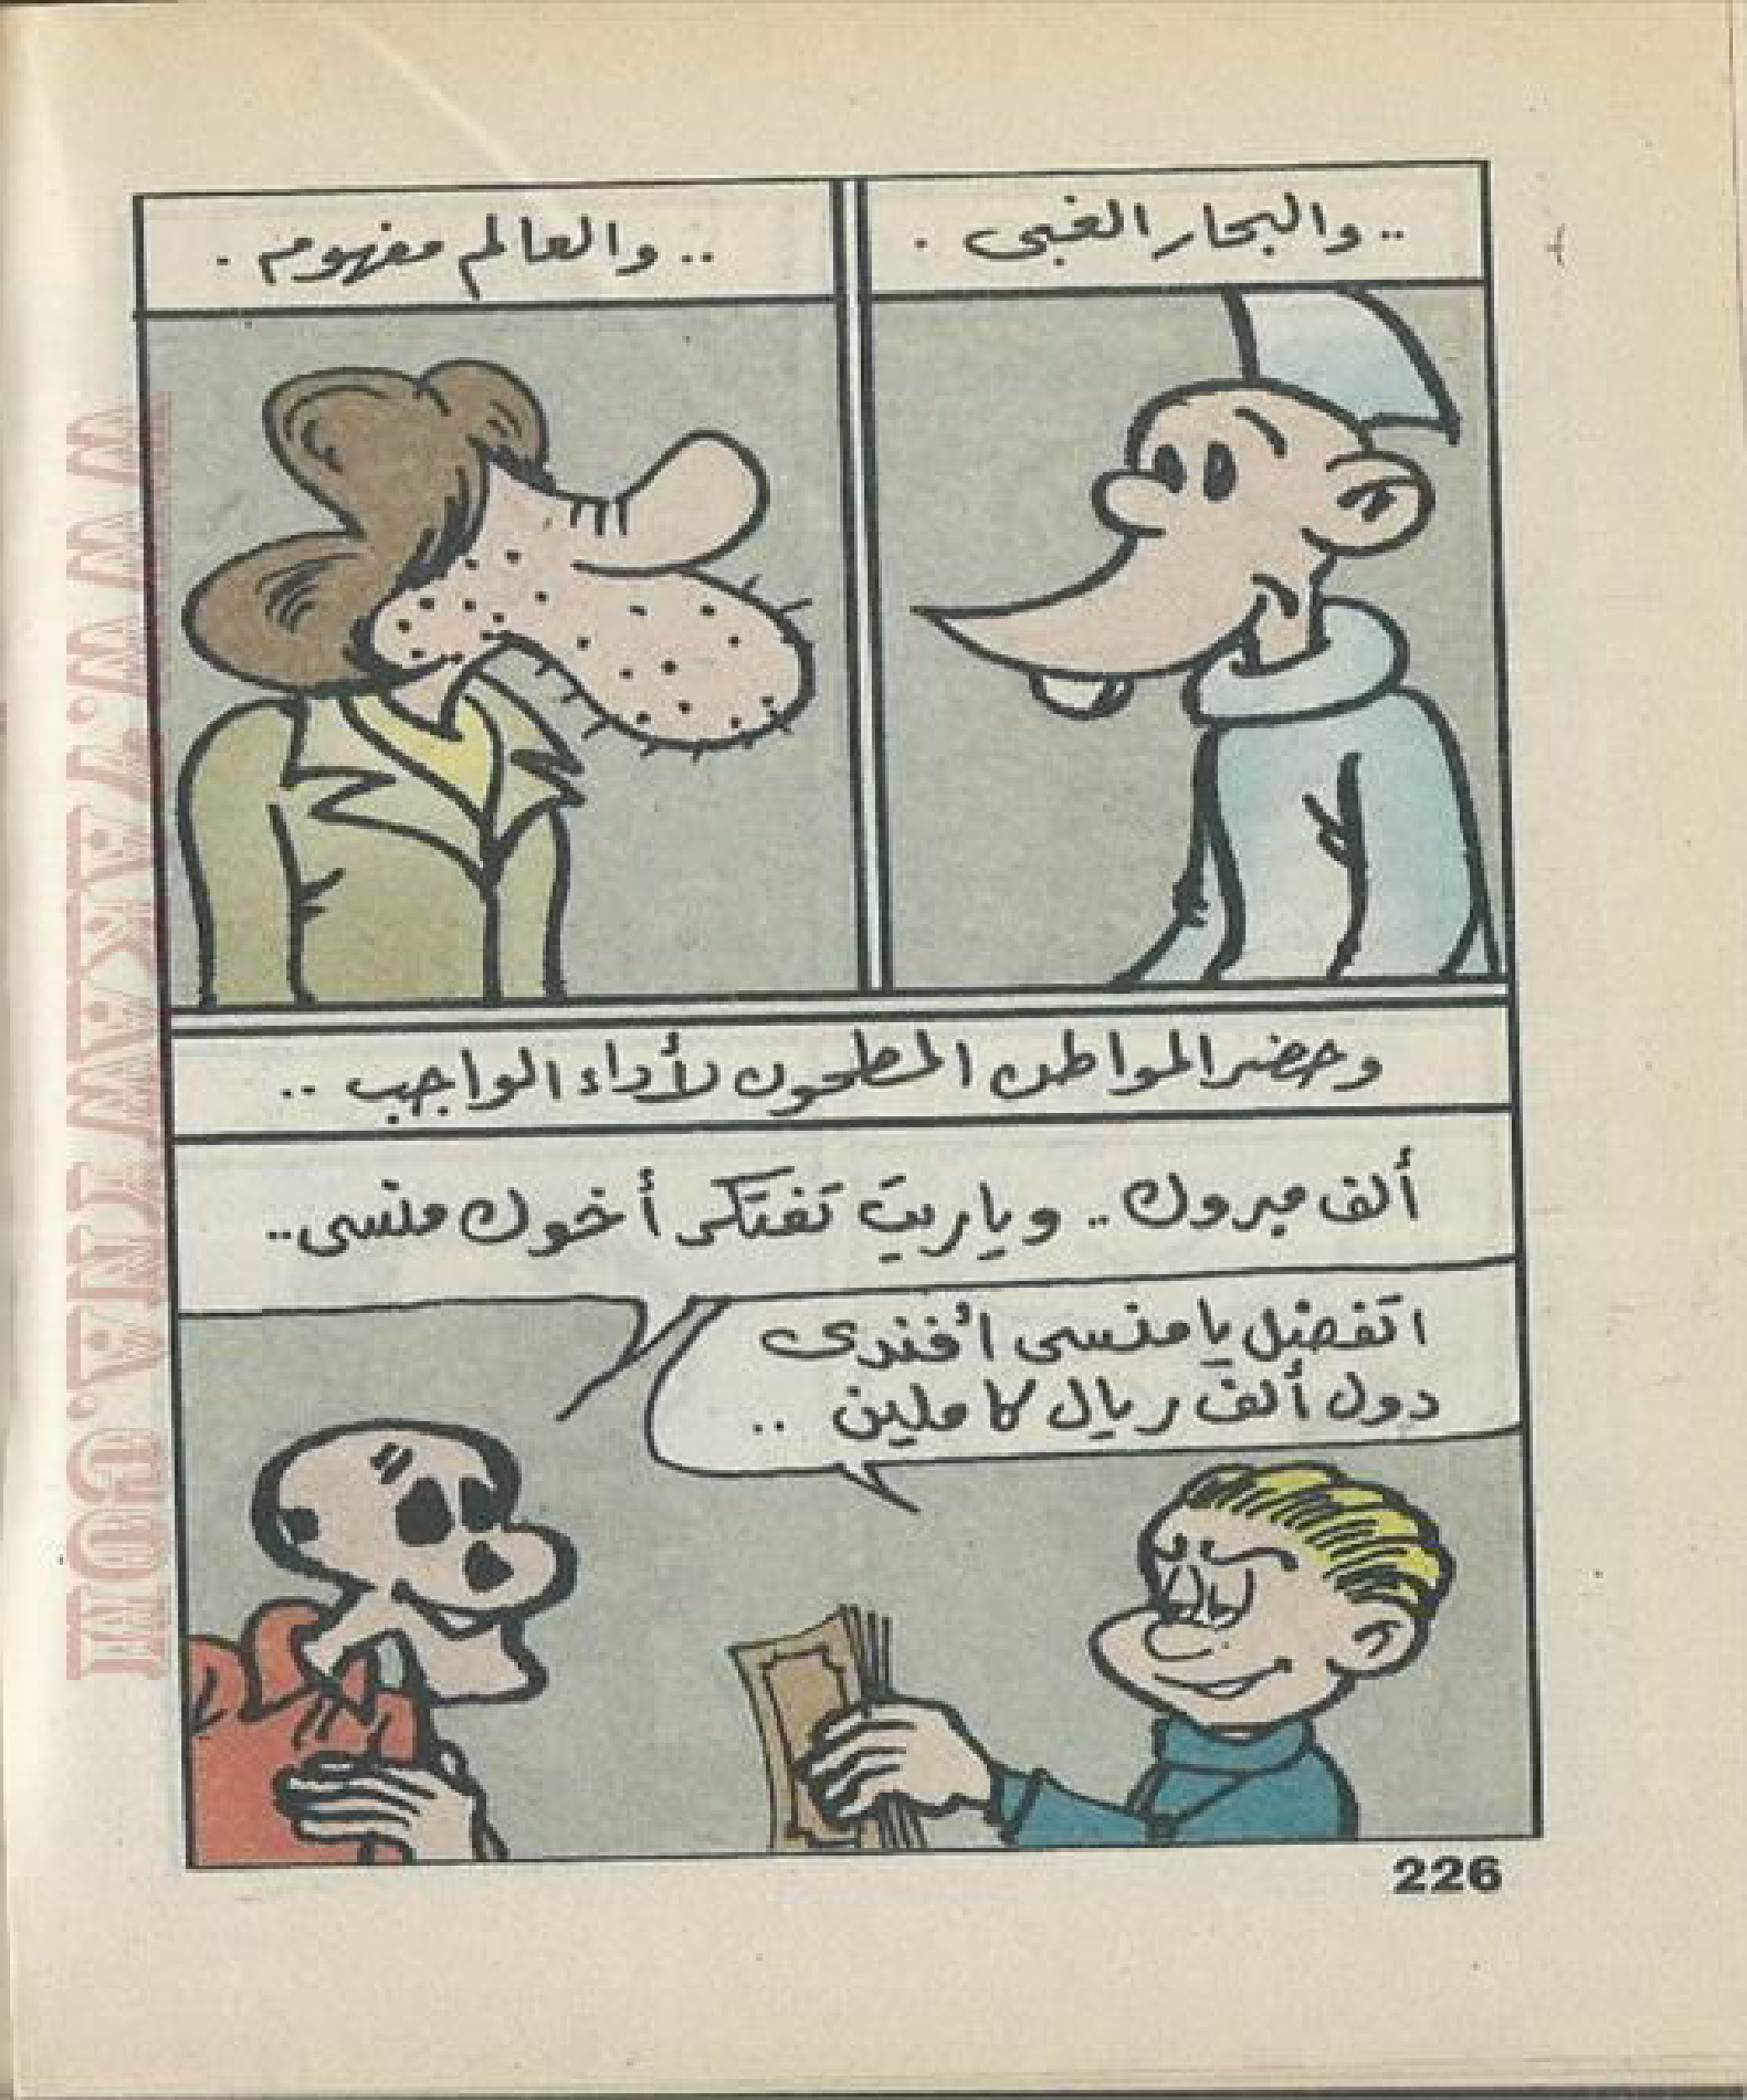 .. والبحار الغبى .
.. والعالم مفهوم .
وحضر المواطن المطحون لأداء الواجب ..
ألف مبروك .. وياريت تفتكر أخوك منسى ..
اتفضل يا منسى أفندى
دول ألف ريال كاملين ..
226